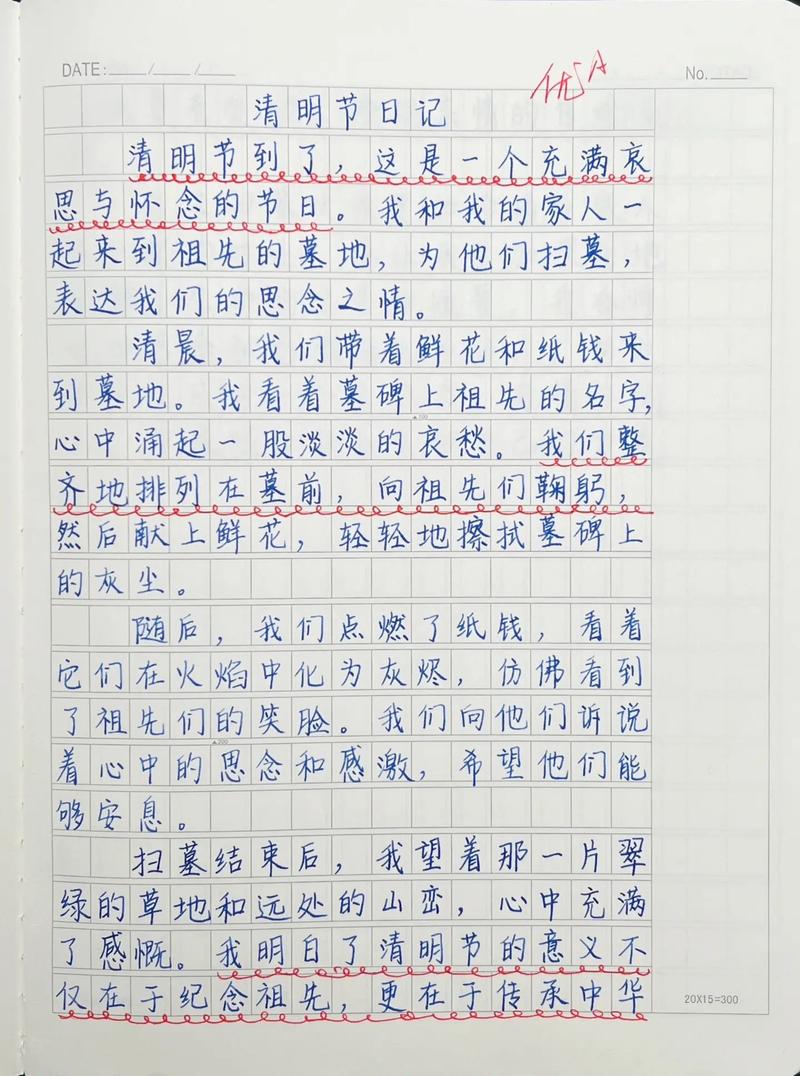 DATE: ___/___/___
优A
No.___
清明节日记
清明节到了，这是一个充满哀
思与怀念的节日。我和我的家人一
起来到祖先的墓地，为他们扫墓，
表达我们的思念之情。
清晨，我们带着鲜花和纸钱来
到墓地。我看着墓碑上祖先的名字，
心中涌起一股淡淡的哀愁。我们整
齐地排列在墓前，向祖先们鞠躬，
然后献上鲜花，轻轻地擦拭墓碑上
的灰尘。
随后，我们点燃了纸钱，看着
它们在火焰中化为灰烬，仿佛看到
了祖先们的笑脸。我们向他们诉说
着心中的思念和感激，希望他们能
够安息。
扫墓结束后，我望着那一片翠
绿的草地和远处的山峦，心中充满
了感慨。我明白了清明节的意义不
仅在于纪念祖先，更在于传承中华
20X15=300